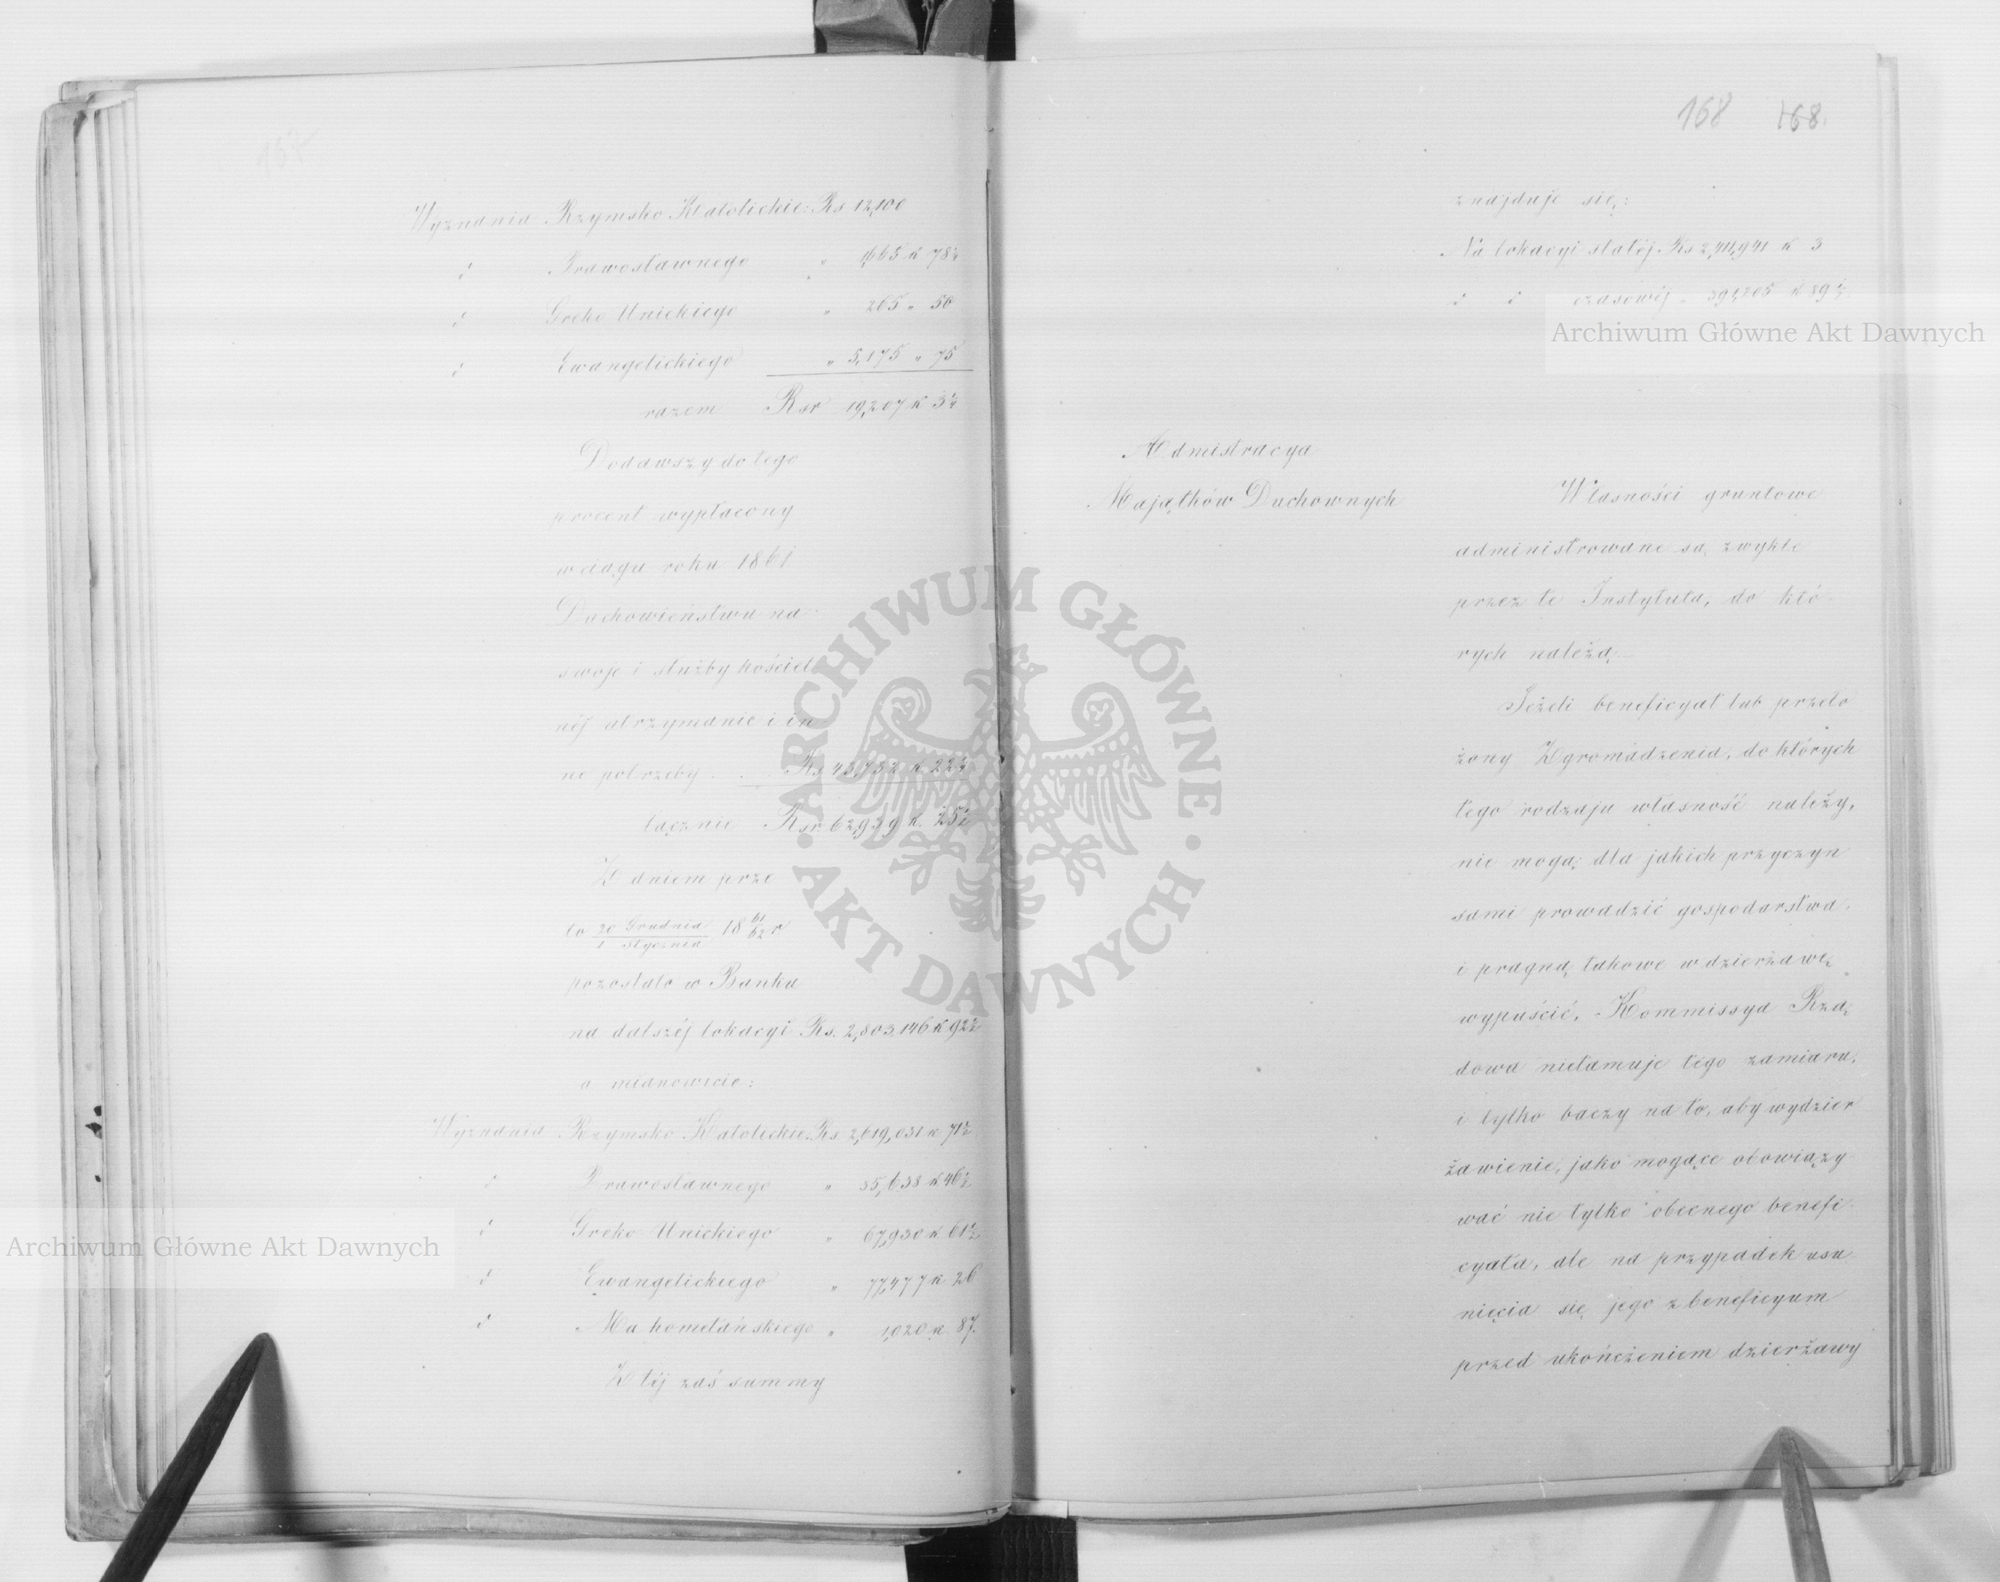 157
Wyznania Rzymsko Katolickie: Rs 12,100
" Prawosławnego " 1,665 k 78½
" Greko Unickiego " 265 " 50
" Ewangelickiego " 5,175 " 75
razem Rsr 19,207 k 3½
Dodawszy do tego
procent wypłacony
w ciągu roku 1861
Duchowieństwu na
swoje i służby kościel
néj utrzymanie i in
ne potrzeby . . Rs 43,732 k 22½
łącznie Rsr. 62,939 k. 25½
Z dniem prze
to 20 Grudnia / 1 stycznia 18 61/62 r
pozostało w Banku
na dalszéj lokacyi Rs. 2,803,146 k 92½
a mianowicie:
Wyznania Rzymsko Katolickie: Rs. 2,619,031 k 71½
" Prawosławnego " 35,638 k 46½
" Greko Unickiego " 67,930 k 61½
" Ewangelickiego " 77,477 k 26
" Mahometańskiego " 1,020 k 87.
Z téj zaś summy
168 168.
znajduje się:
Na lokacyi stałéj Rs 2,411,941 k 3
" " czasowéj " 391,205 k 89½
Admistracya
Majątków Duchownych
Własności gruntowe
administrowane są zwykle
przez te Instytuta, do któ-
rych należą.
Jeżeli beneficyat lub przeło
żony Zgromadzenia, do których
tego rodzaju własność należy,
nie mogą dla jakich przyczyn
sami prowadzić gospodarstwa,
i pragną takowe w dzierżawę
wypuścić, Kommissya Rzą
dowa nietamuje tego zamiaru,
i tylko baczy na to, aby wydzier
żawienie, jako mogące obowiązy
wać nie tylko obecnego benefi
cyata, ale na przypadek usu
nięcia się jego z beneficyum
przed ukończeniem dzierżawy
Archiwum Główne Akt Dawnych
Archiwum Główne Akt Dawnych
ARCHIWUM GŁÓWNE · AKT DAWNYCH ·